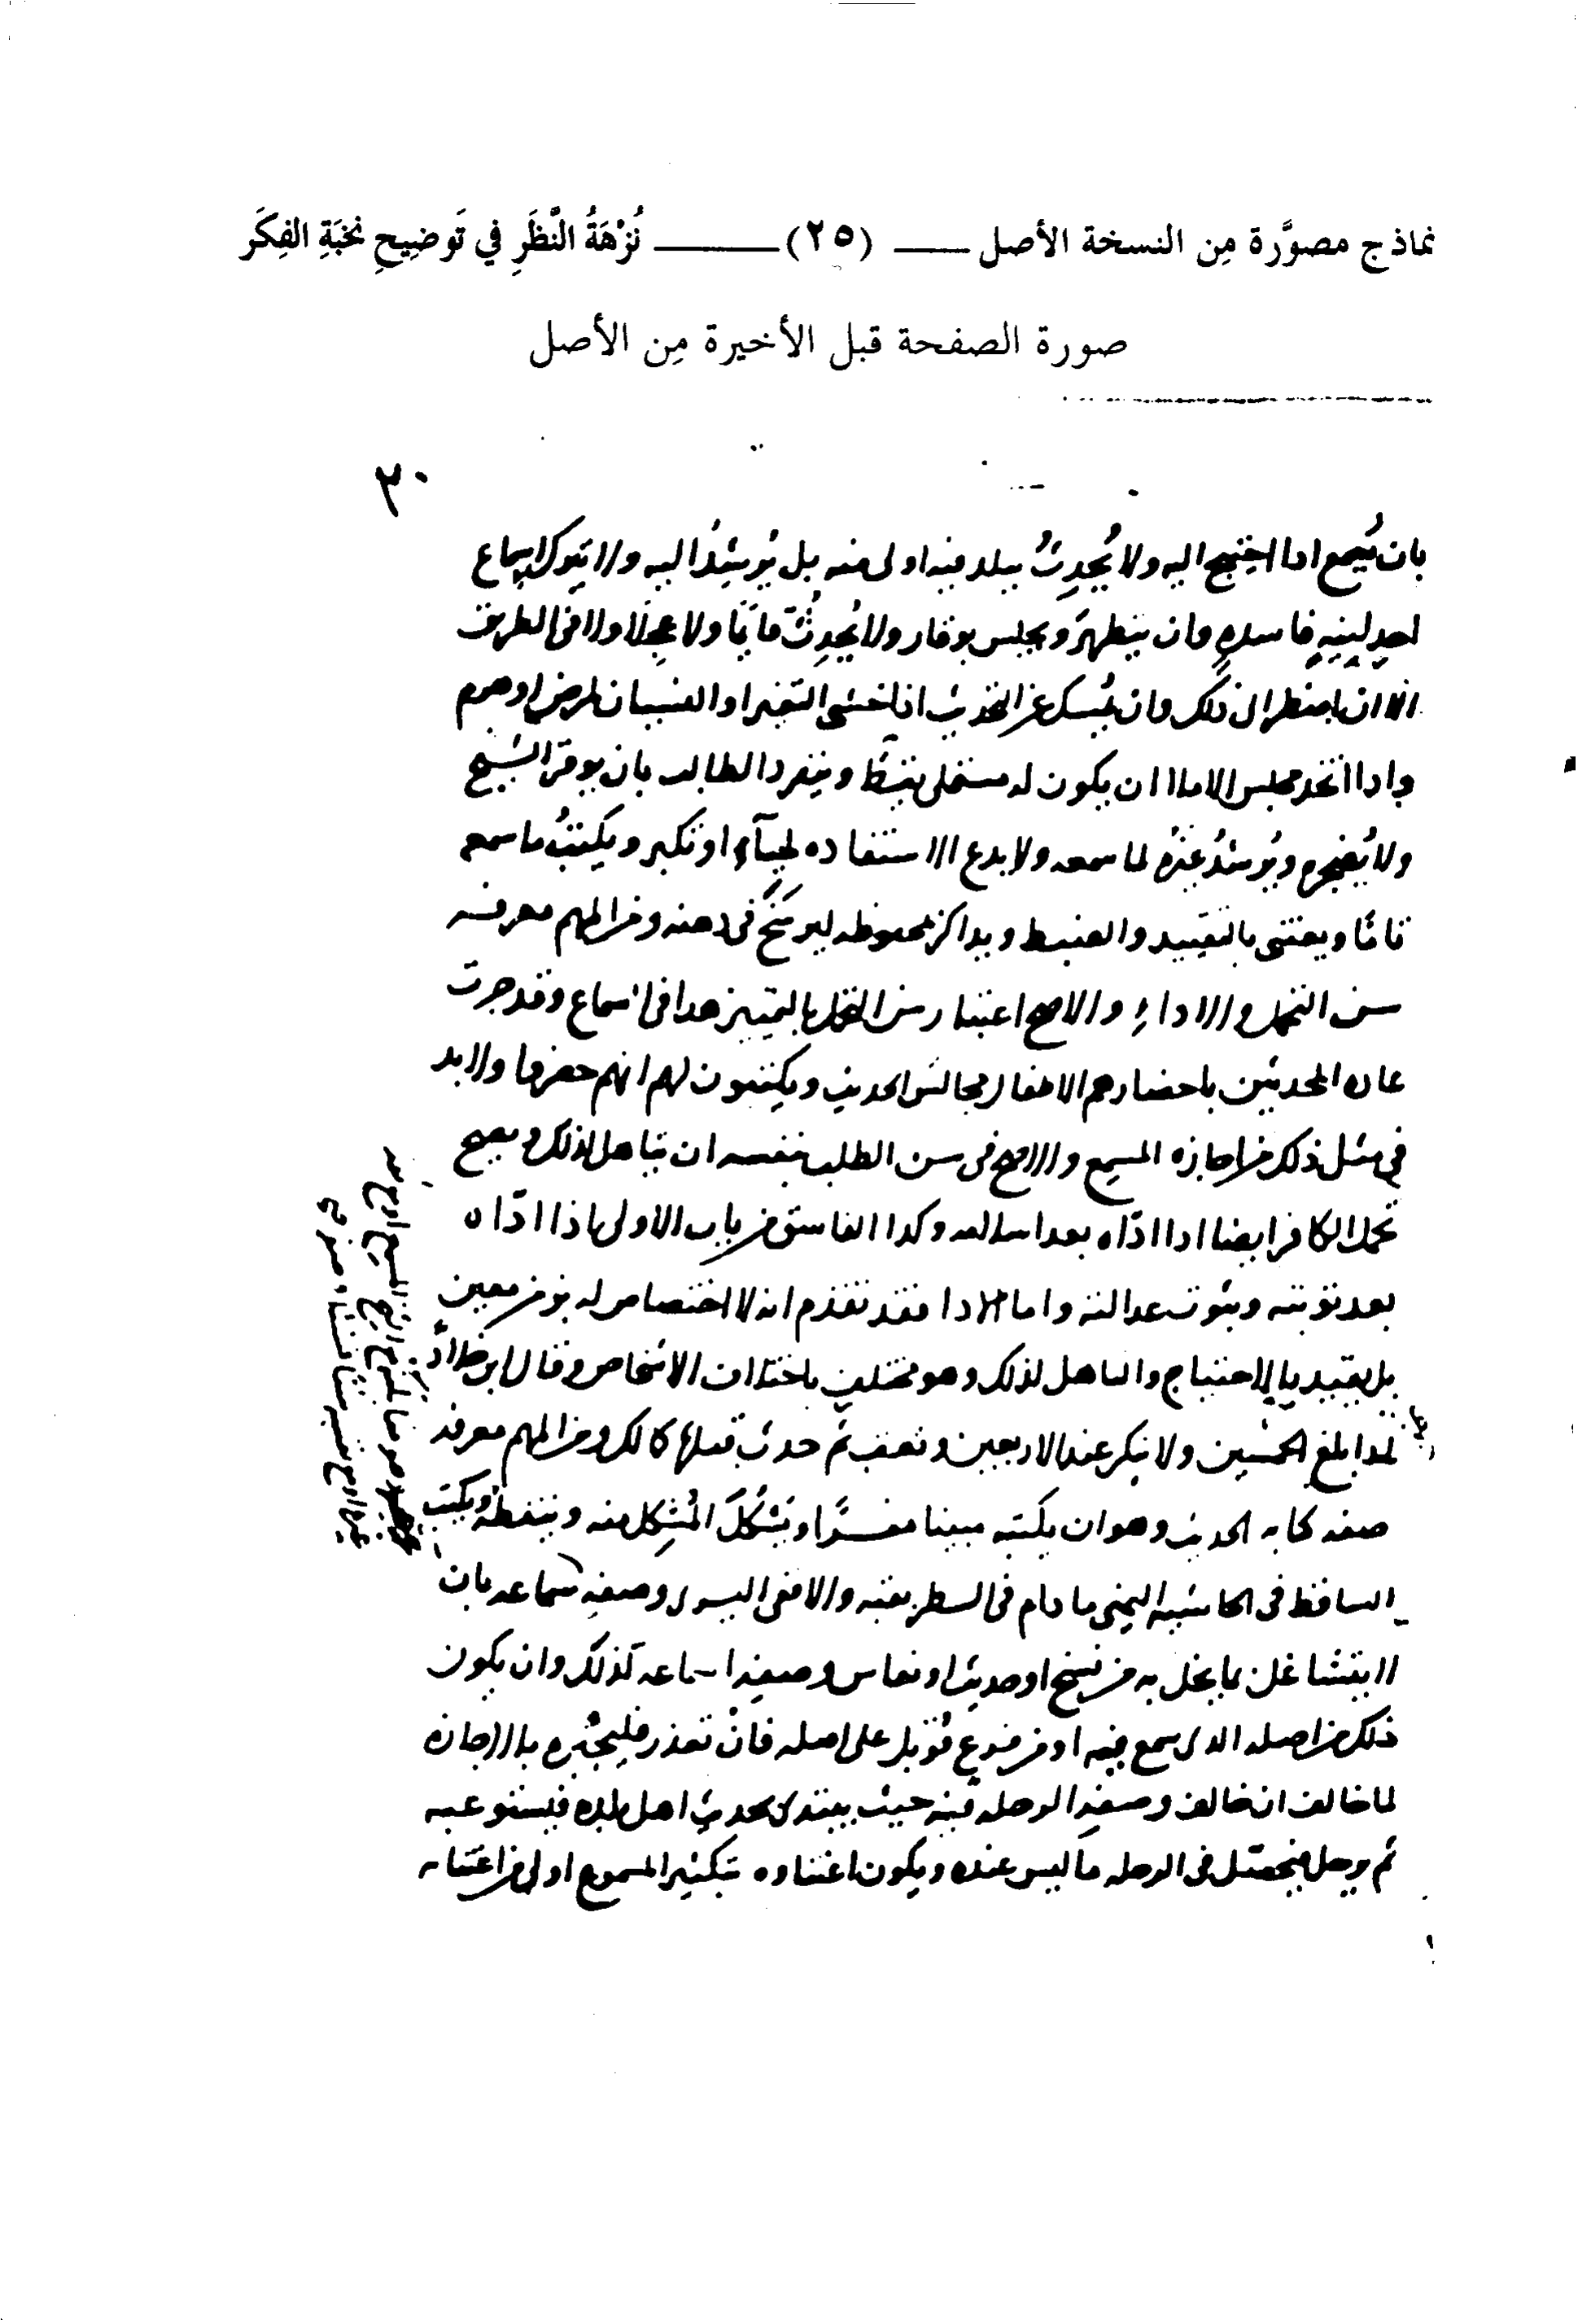 نماذج مصوَّرة مِن النسخة الأصل (٢٥) نُزْهَةُ النَّظَرِ في تَوضِيحِ نخبَةِ الفِكَر
صورة الصفحة قبل الأخيرة مِن الأصل
٣٠
بان يُسمع اذا احتيج اليه ولا يُحدِثُ ببلد فيه اولى منه بل يُرشِدُ اليه ولا يترك اسماع
احدٍ لنيةٍ فاسدهٍ وان يتطهرَ ويجلس بوقار ولا يُحدِثُ قائمًا ولا عجلًا ولا فى الطريق
الا ان اضطر الى ذلك وان يُمسك عن التحديث اذا خشى التغير او النسيان لمرض او هرم
واذا اتخذ مجلس الاملا ان يكون له مستملى يقظ وينفرد الطالب بان يوقر الشيخ
ولا يُضجره ويُرشدُ غيرَه لما سمعه ولا يدع الاستفاده لحيآءٍ او تكبر ويكتبُ ما سمعه
تامًا ويعتنى بالتقييد والضبط ويذاكر بمحفوظه ليرسَخَ فى ذهنه ومن المهم معرفه
سن التحمل والاداءِ والاصح اعتبار سن التحمل بالتمييز هذا فى السماع وقد جرت
عاده المحدثين باحضارهم الاطفال مجالس الحديث ويكتبون لهم انهم حضروا ولا بد
فى مثل ذلك من اجازه المسمع والاصح فى سن الطلب بنفسه ان يتاهل لذلك ويصح
تحمل الكافر ايضا اذا ادّاه بعد اسلامه وكذا الفاسق من باب الاولى اذا ادّاه
بعد توبته وثبوت عدالته واما الادا فقد تقدم انه لا اختصاص له بزمن معين
بل يقيد بالاحتياج والتاهل لذلك وهو مختلف باختلاف الاشخاص وقال ابن خلاد
اذا بلغ الخمسين ولا ينكر عند الاربعين وتعقب بمن حدث قبلها كمالك ومن المهم معرفه
صفه كتابه الحديث وهو ان يكتبه مبينا مفسرًا ويَشْكُلَ المُشكِل منه وينقطه ويكتب
الساقط فى الحاشيه اليمنى ما دام فى السطر بقيه والا ففى اليسرى وصفهِ سماعه بان
لا يتشاغل بما يخل به من نسخ او حديث او نعاس وصفهِ اسماعه كذلك وان يكون
ذلك من اصله الذى سمع فيه او من فرع قُوبل على اصله فان تعذر فليجبره بالاجازه
لما خالف ان خالف وصفهِ الرحله فيه حيث يبتدى بحديث اهل بلده فيستوعبه
ثم يرحل فيحصل فى الرحله ما ليس عنده ويكون اعتناوه بتكثير المسموع اولى من اعتنايه